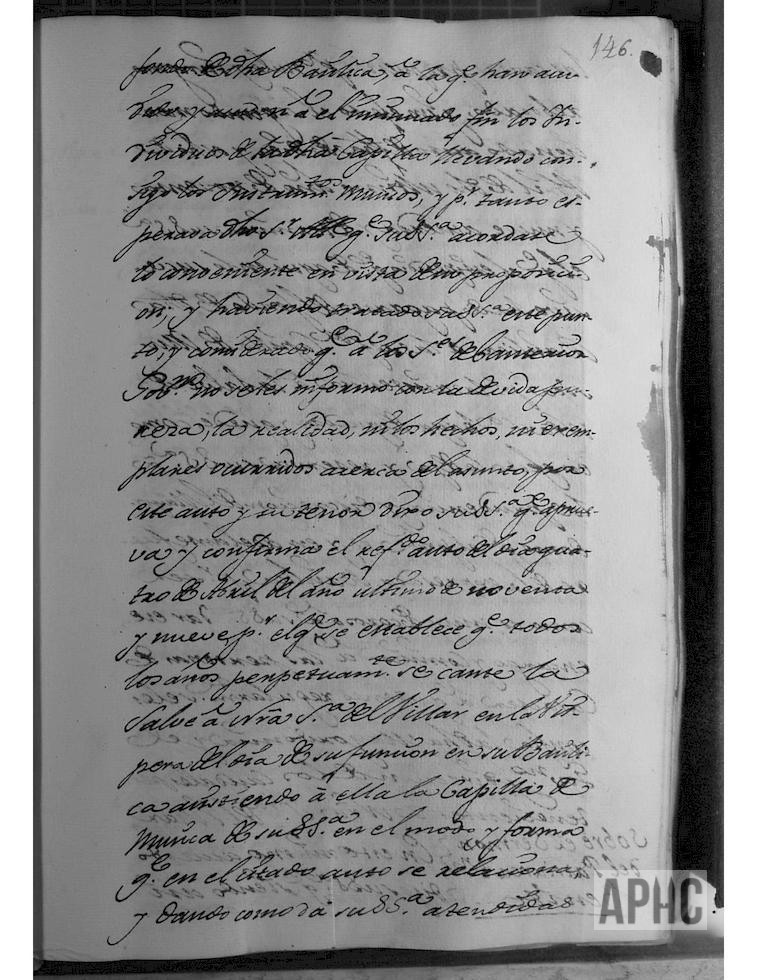 146.
de dha Basilica, a la q.e han acu-
dido y a el enunciado fin los In-
dividuos de la dha Capilla llevando con-
sigo los Instrum.tos Musicos, y p.r tanto es-
perava dho S.r q.e Su S.a acordase
lo conveniente en vista de su proposici-
on; y haviendo tratado su S.a este pun-
to, y considerado q.e a los S.es de la anterior
no seles informó con la devida pu-
reza, la realidad, ni los hechos, ni exem-
plares ocurridos acerca del asunto, por
este auto y su tenor dixo su S.a q.e aprue-
va y confirma el ref.do auto del dia qua-
tro de Abril del año ultimo de noventa
y nueve p.r el q.e se establece q.e todos
los años perpetuam.te se cante la
Salve à Nrã S.ra del Villar en la Vis-
pera del dia de su funcion en su Basili-
ca asistiendo à ella la Capilla de
Musica de su S.a en el modo y forma
q.e en el citado auto se relaciona
y dando como da su S.a atendidas
Sobre el
del
APHC